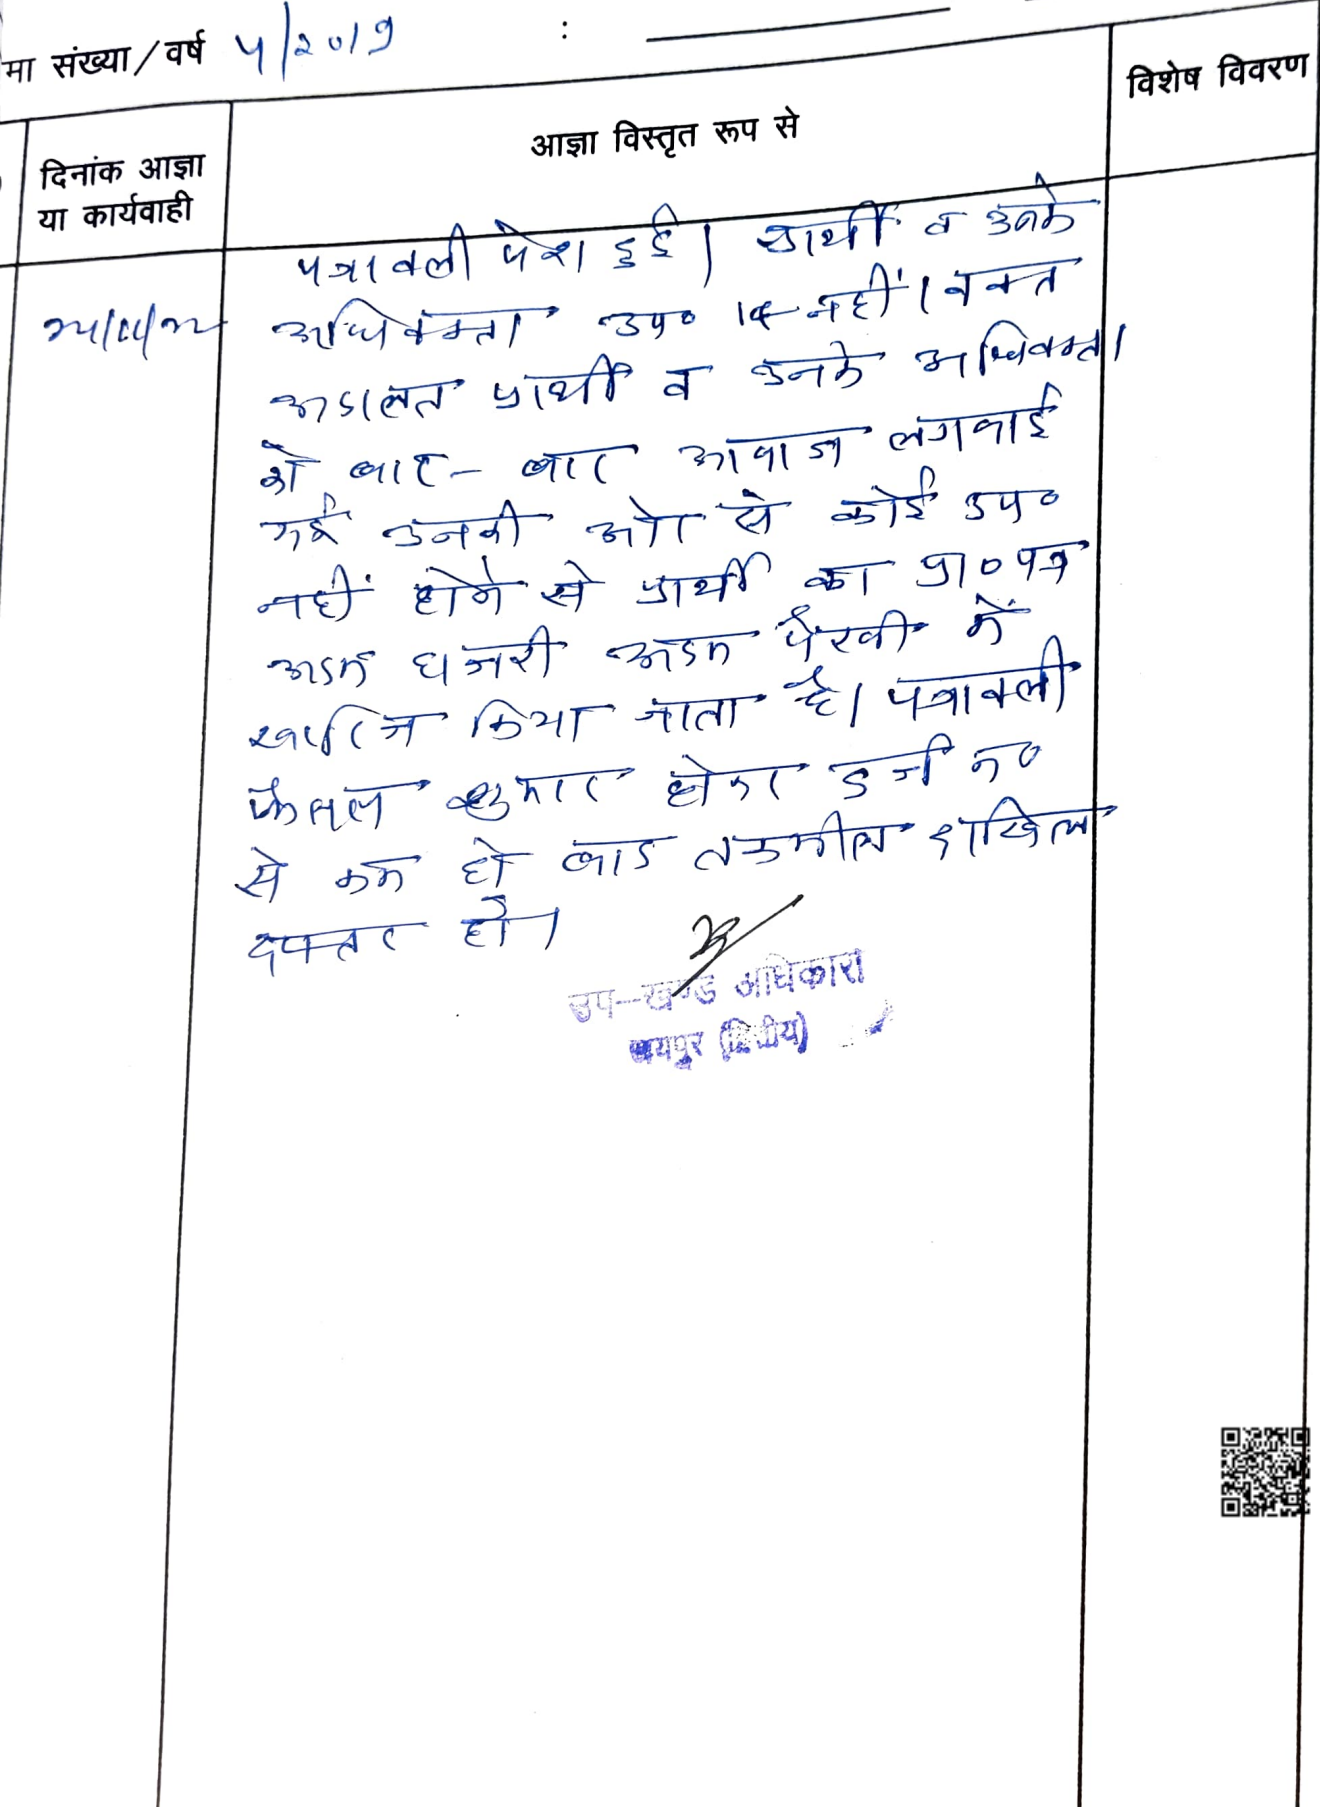 मा संख्या/वर्ष 4/2019 :
दिनांक आज्ञा
या कार्यवाही
आज्ञा विस्तृत रूप से
विशेष विवरण
पत्रावली पेश हुई। प्रार्थी व उनके
अधिवक्ता उप० नहीं। वक्त
अदालत प्रार्थी व उनके अधिवक्ता
को बार-बार आवाज लगवाई
गई उनकी ओर से कोई उप०
नहीं होने से प्रार्थी का प्रा०पत्र
अदम हाजरी अदम पैरवी में
खारिज किया जाता है। पत्रावली
फैसल शुमार होकर दर्ज न०
से कम हो बाद तकमील दाखिल
दफ्तर हो।
उप-खण्ड अधिकारी
जयपुर (द्वितीय)